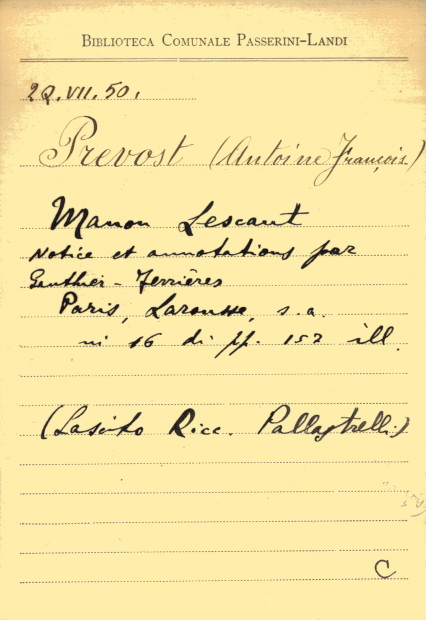 BIBLIOTECA COMUNALE PASSERINI-LANDI
2Q.VII.50.
Prevost (Antoine François)
Manon Lescaut
Notice et annotations par
Gauthier-Ferrières
Paris, Larousse, s.a.
in 16 di pp. 157 ill.
(Lascito Ricc. Pallastrelli)
C